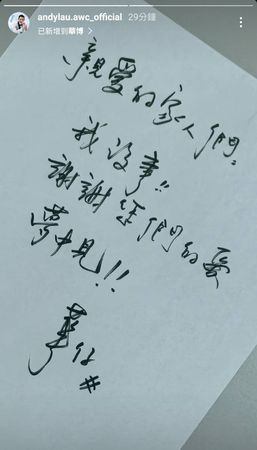 andylau.awc_official 29分鐘
已新增到華博
親愛的家人們。
我沒事!!
謝謝你們的愛
夢中見!!
華仔
#